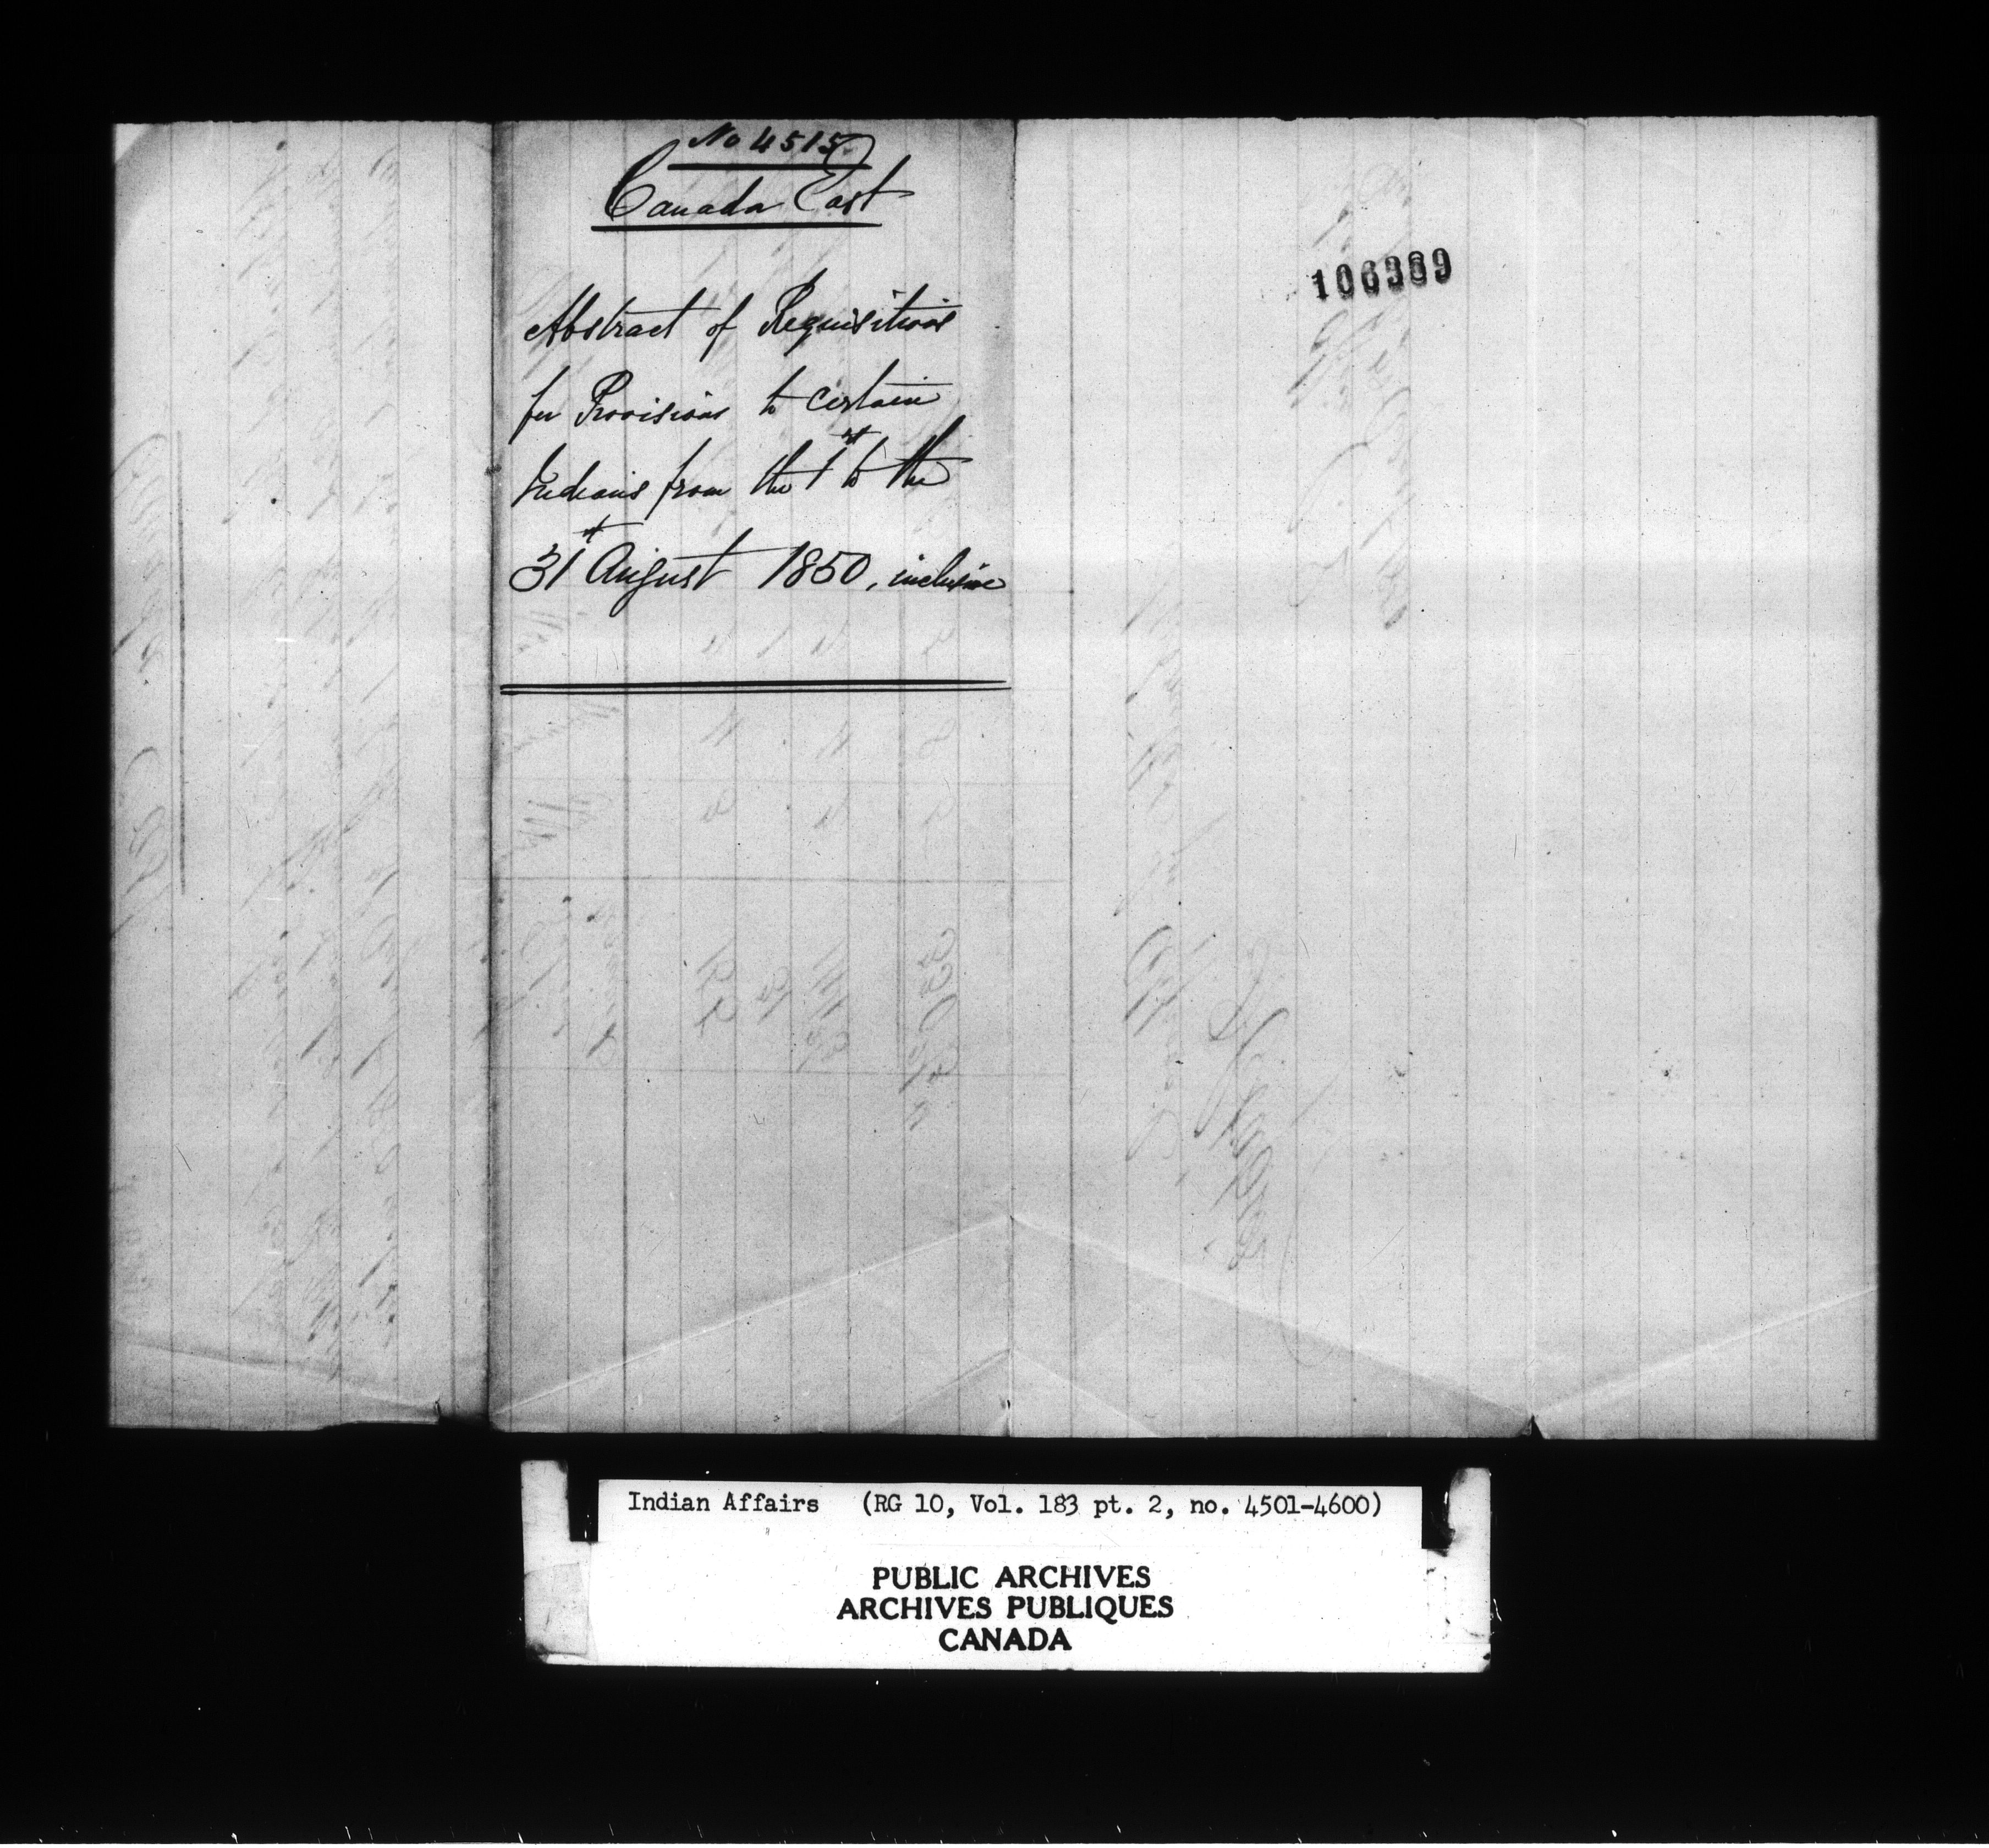 No 4515
Canada East
Abstract of Requisitions
for Provisions to certain
Indians from the 1st to the
31st August 1850, inclusive
106389
Indian Affairs (RG 10, Vol. 183 pt. 2, no. 4501-4600)
PUBLIC ARCHIVES
ARCHIVES PUBLIQUES
CANADA